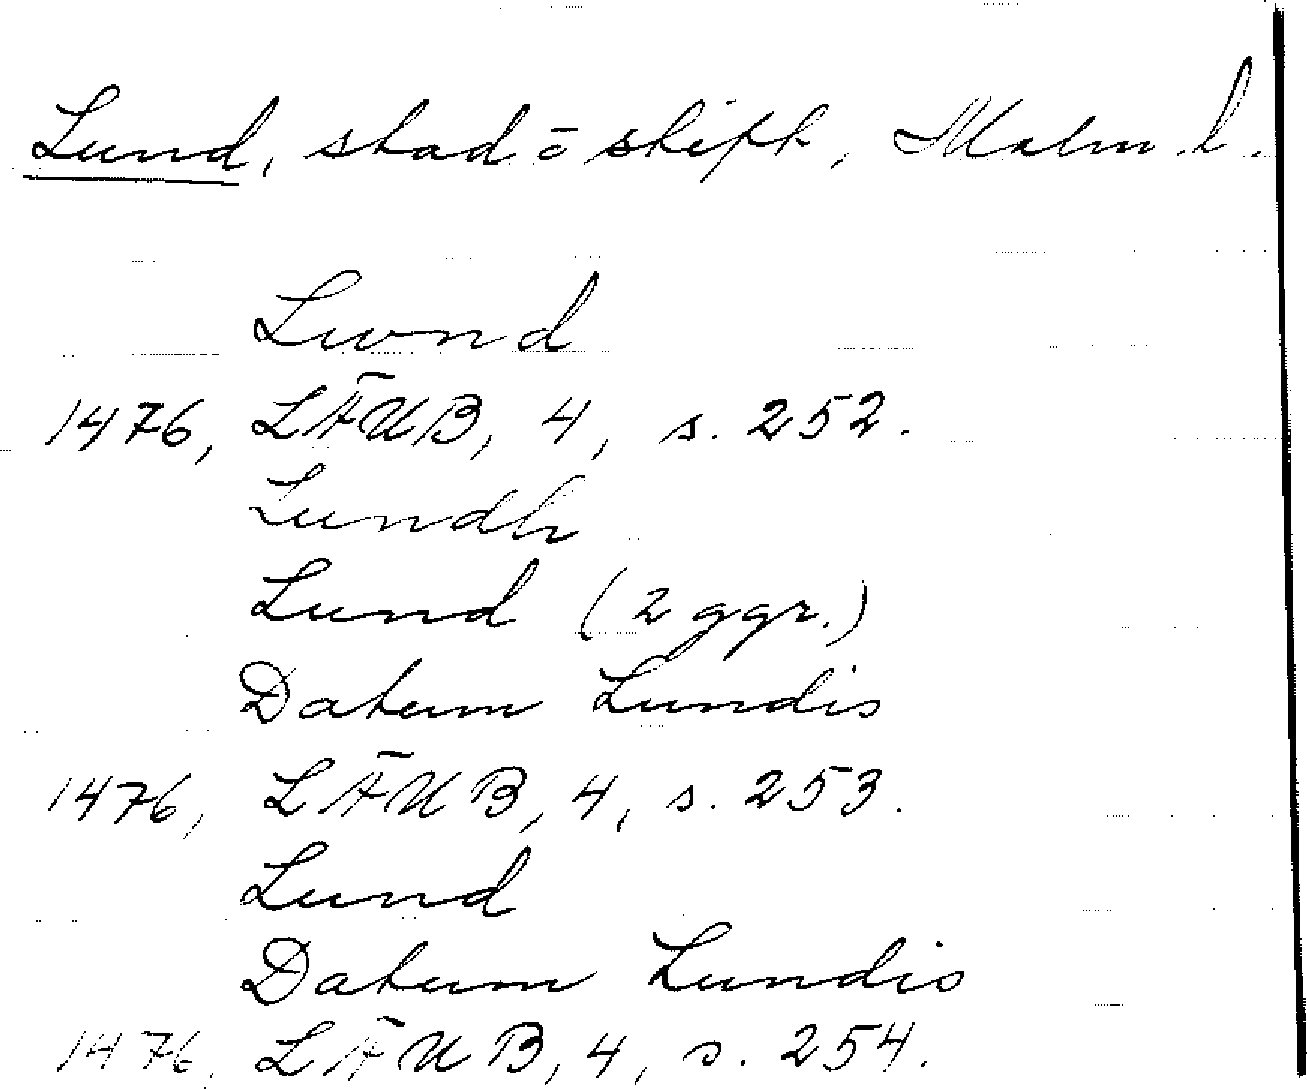 Lund, stad ō stift, Malm. l.
Lwnd
1476, LÄUB, 4, s. 252.
Lundh
Lund (2 ggr.)
Datum Lundis
1476, LÄUB, 4, s. 253.
Lund
Datum Lundis
1476, LÄUB, 4, s. 254.